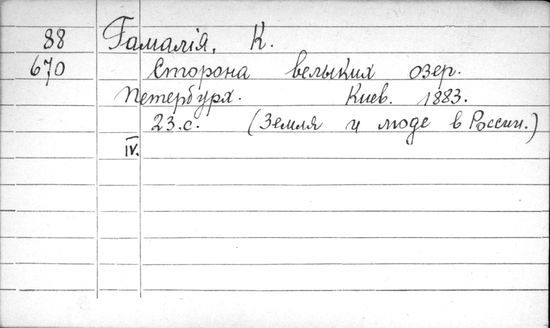 88 Гамалія, К.
670 Сторона велыких озер.
Петербург. Киев. 1883.
23.с. (Земля и люде в России.)
IV.